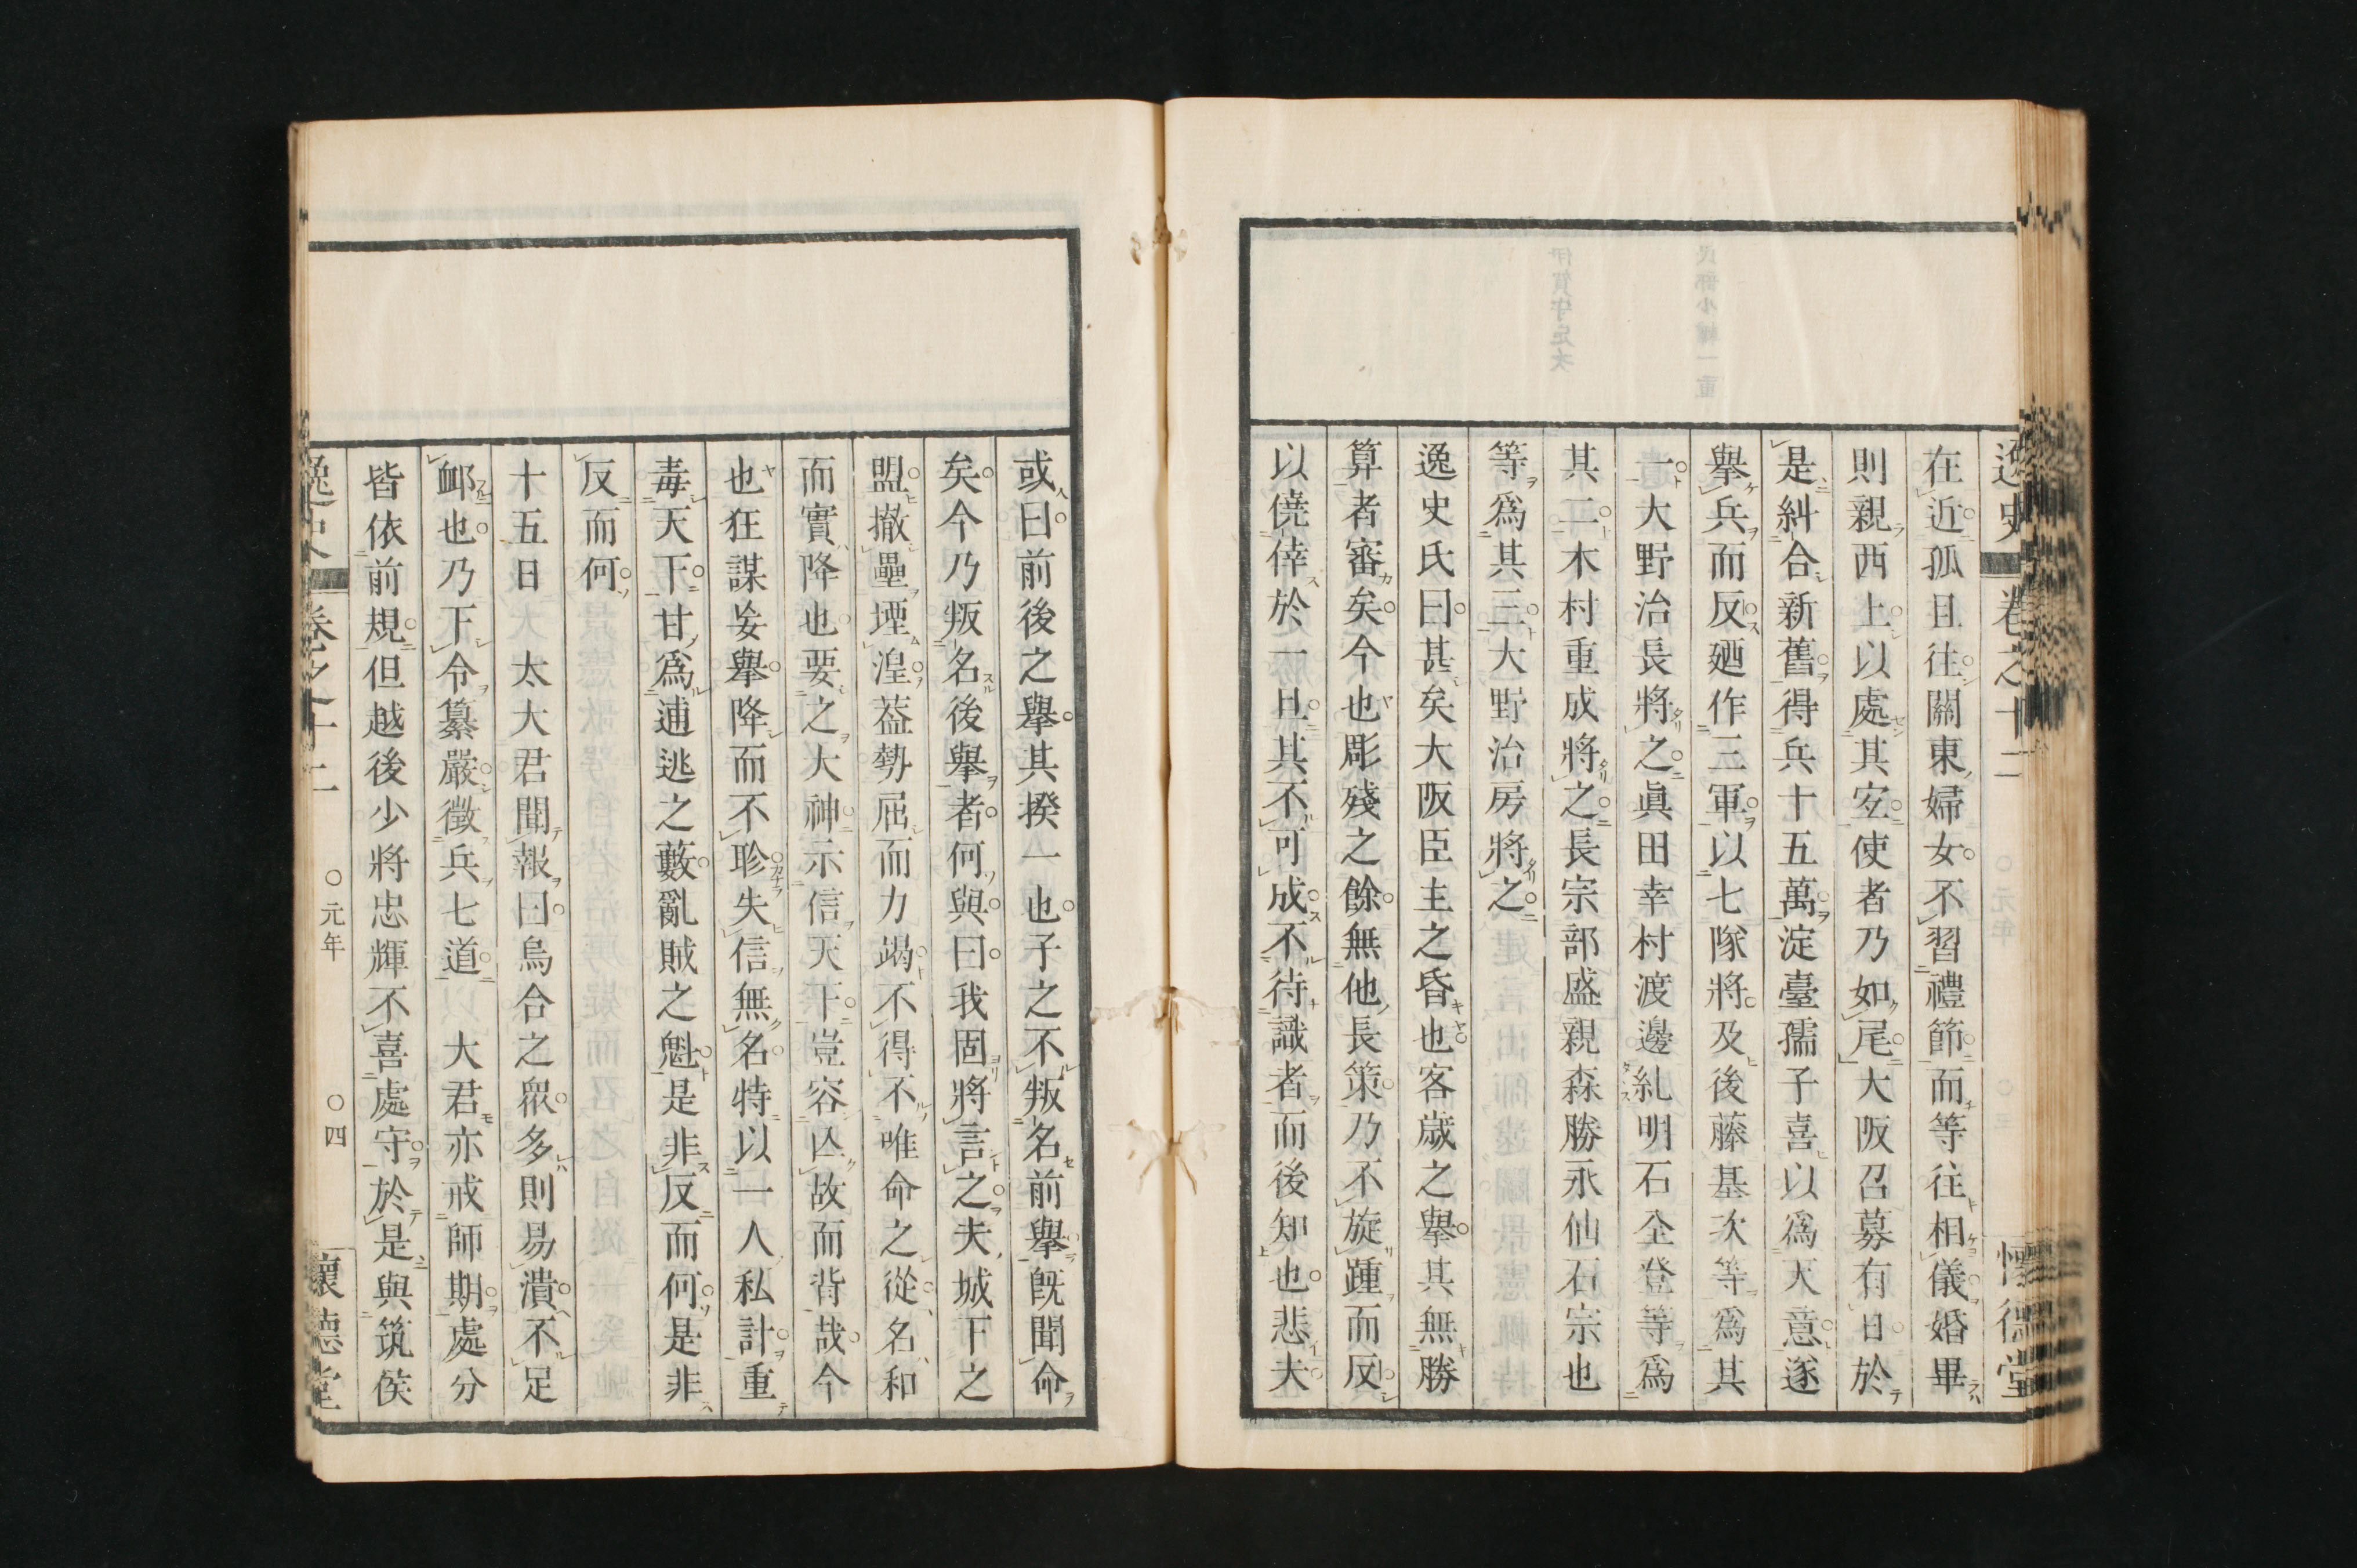 逸史 卷之十二 懷德堂
在近孤且往關東婦女不習禮節而等往相儀婚畢
則親西上以處其宐使者乃如尾大阪召募有日於
是糾合新舊得兵十五萬淀臺孺子喜以爲天意遂
擧兵而反廼作三軍以七隊將及後藤基次等爲其
一大野治長將之眞田幸村渡邊糺明石全登等爲
其二木村重成將之長宗部盛親森勝永仙石宗也
等爲其三大野治房將之
逸史氏曰甚矣大阪臣主之昏也客歲之擧其無勝
算者審矣今也彫殘之餘無他長策乃不旋踵而反
以僥倖於一旦其不可成不待識者而後知也悲夫
或曰前後之擧其揆一也子之不叛名前擧旣聞命
矣今乃叛名後擧者何與曰我固將言之夫城下之
盟撤壘堙湟葢勢屈而力竭不得不唯命之從名和
而實降也要之大神示信天下豈容匹故而背哉今
也狂謀妄擧降而不聆失信無名特以一人私計重
毒天下甘爲逋逃之藪亂賊之魁是非反而何是非
反而何
十五日 太大君聞報曰烏合之衆多則易潰不足
衈也乃下令纂嚴徵兵七道 大君亦戒師期處分
皆依前規但越後少將忠輝不喜處守於是與筑侯
逸史 卷之十二 〇元年 〇四 懷德堂